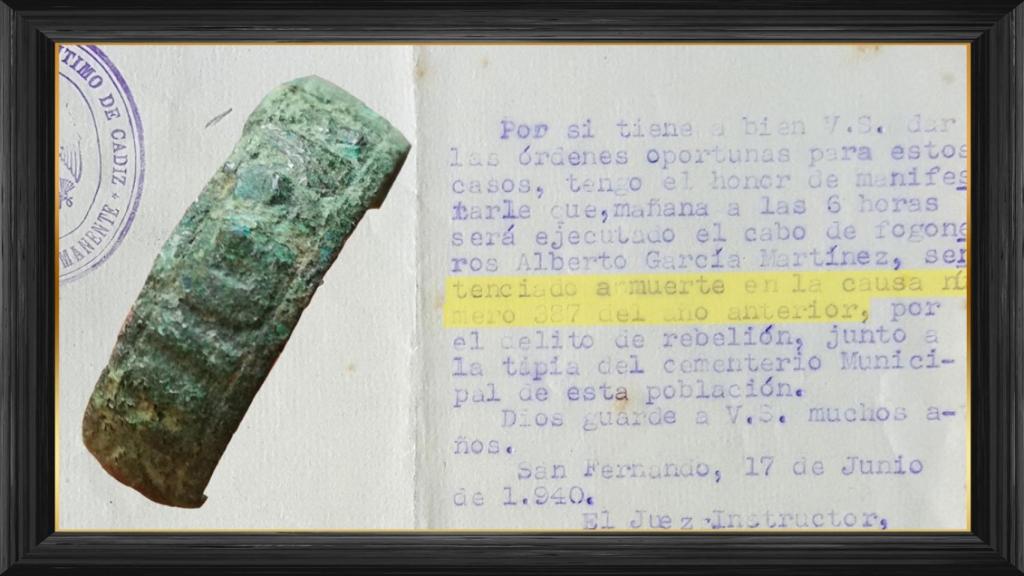 TIMO DE CADIZ
MANENTE
Por si tiene a bien V.S. dar
las órdenes oportunas para estos
casos, tengo el honor de manifes
tarle que,mañana a las 6 horas
será ejecutado el cabo de fogone
ros Alberto García Martínez, sen
tenciado a muerte en la causa nú
mero 387 del año anterior, por
el delito de rebelión, junto a
la tapia del cementerio Munici-
pal de esta población.
Dios guarde a V.S. muchos a-
ños.
San Fernando, 17 de Junio
de 1.940.
El Juez-Instructor,